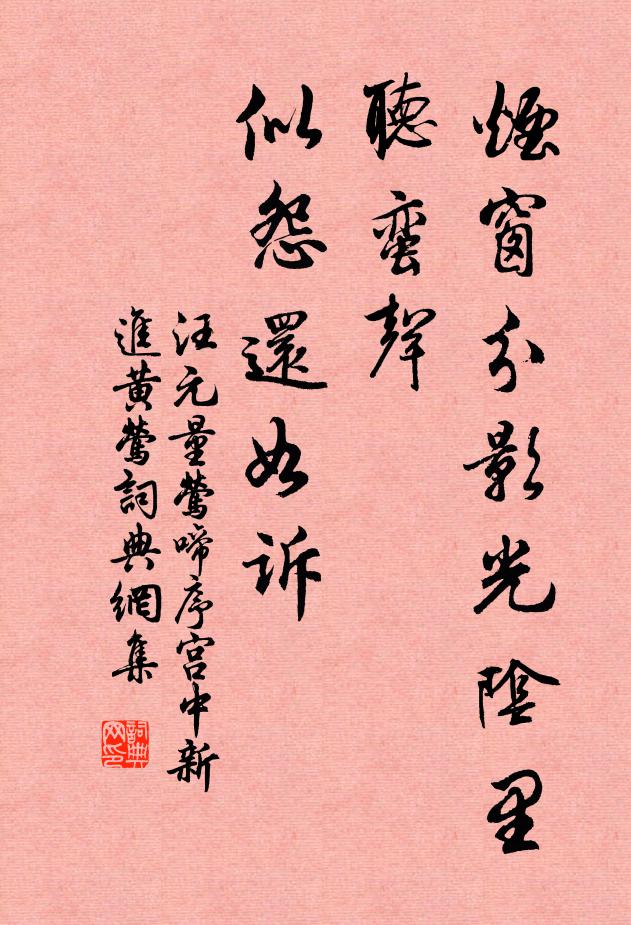 煙窗分影光陰里
聽蛩聲
似怨還如訴
汪元量鶯啼序宮中新
進黃鶯詞典網集
詞典网印